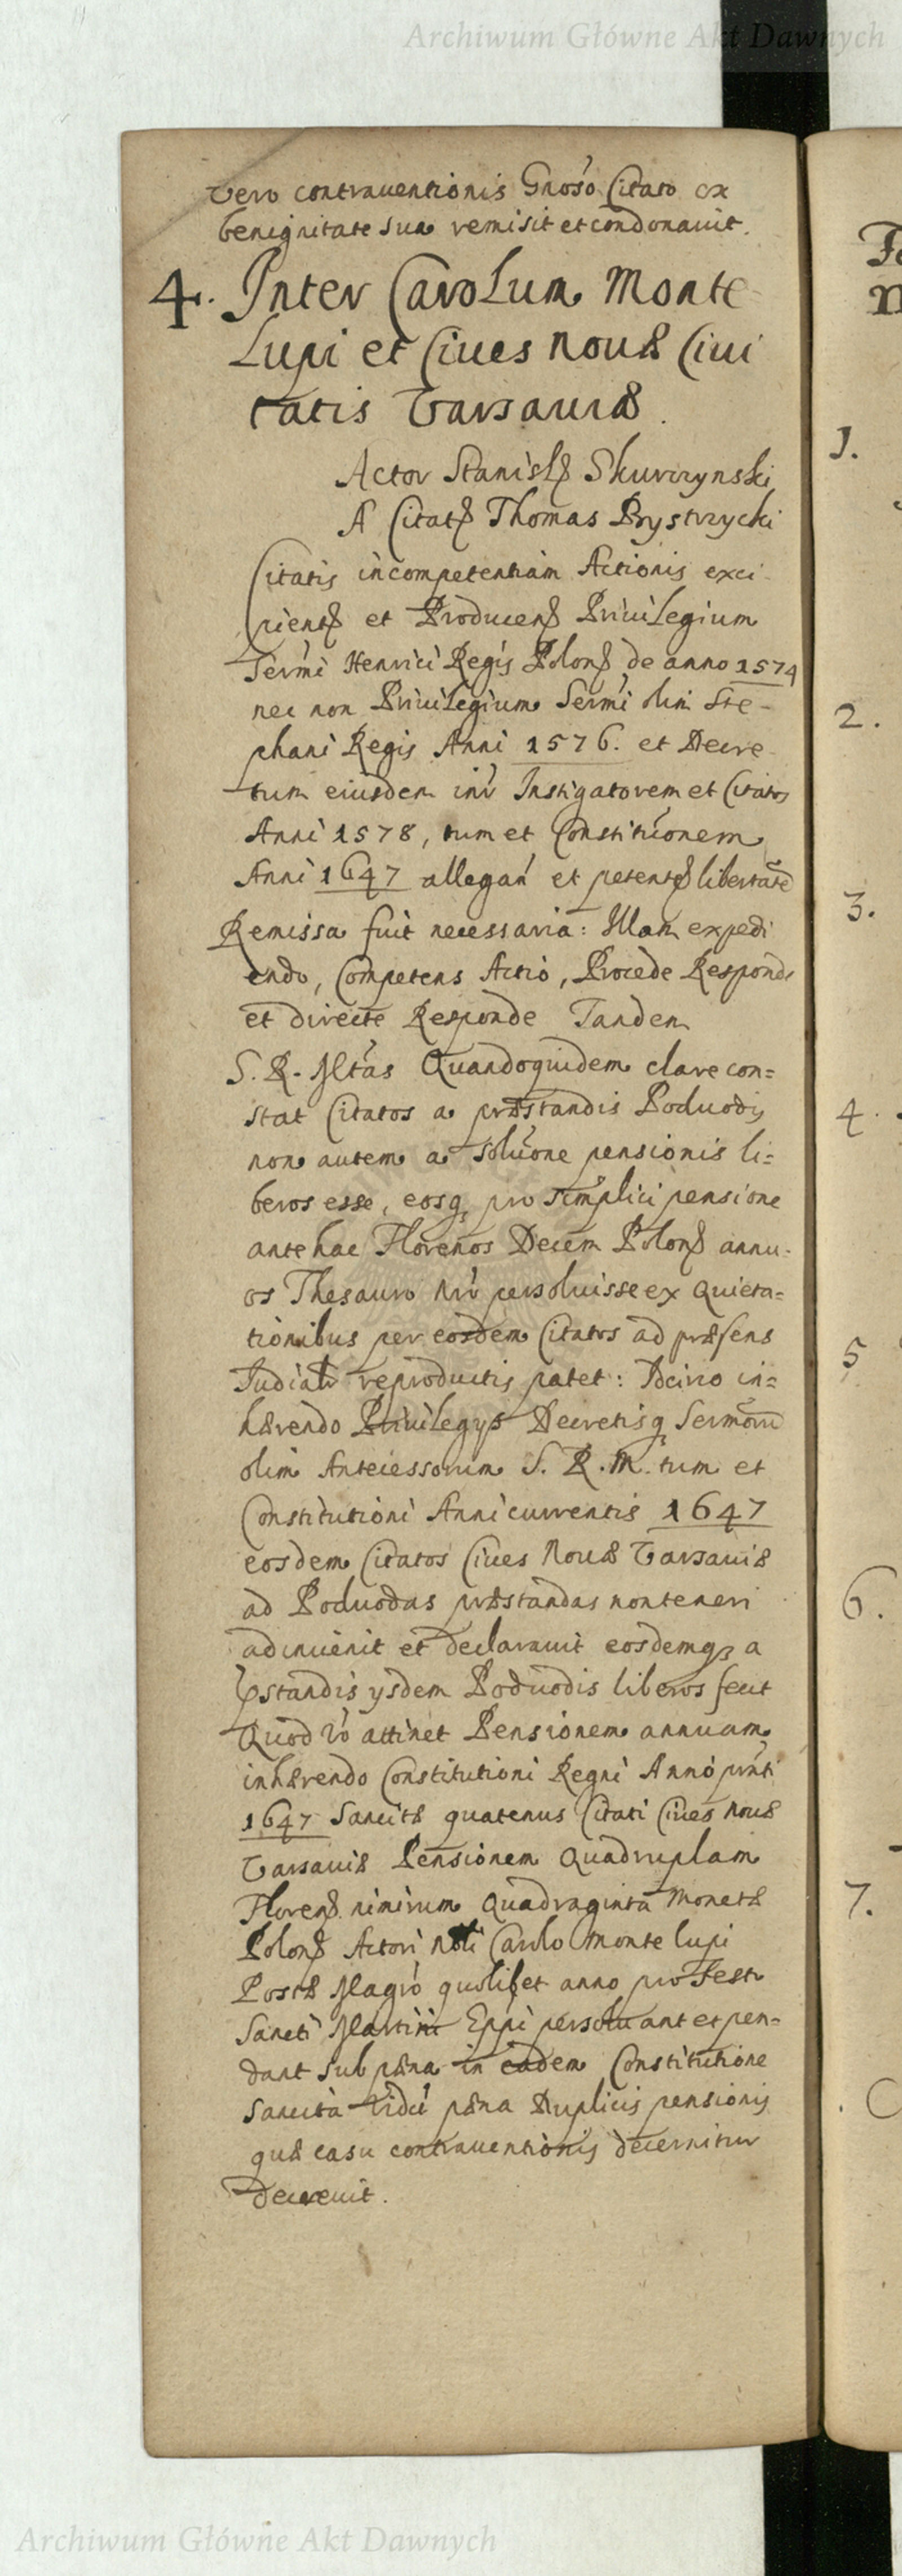 Archiwum Główne Akt Dawnych
vero contrauentionis Gnoso Citato ex
benignitate sua remisit et condonauit.
4. Inter Carolum Monte
Lupi et Ciues Nouæ Ciui
tatis Varsauiæ.
Actor Stanisls Skurczynski
A Citats Thomas Brystrzycki
Citatis incompetentiam Actionis exci-
pients et Producens Priuilegium
Sermi Henrici Regis Polons de anno 1574
nec non Priuilegium Sermi olim Ste-
phani Regis Anni 1576. et Decre-
tum eiusdem inr Instigatorem et Citatos
Anni 1578, tum et Constitucionem
Anni 1647 allegan et petents libertate
Remissa fuit necessaria: Illam expedi
endo, Competens Actio, Procede Responde
et directe Responde Tandem
S. R. Mtas Quandoquidem clare con=
stat Citatos a præstandis Poduodis
non autem a solucone pensionis li=
beros esse, eosq pro simplici pensione
antehac Florenos Decem Polons annu-
os Thesauro Nro persoluisse ex Quieta=
tionibus per eosdem Citatos ad præsens
Iudiciu reproductis patet: Idcirco in=
hærendo Priuilegys Decretisq Sermoru
olim Antecessorum S. R. M. tum et
Constitutioni Anni currentis 1647
eosdem Citatos Ciues Nouæ Varsauiæ
ad Poduodas præstandas non teneri
adinuenit et declarauit eosdemq a
pstandis ysdem Poduodis liberos fecit
Quod vo attinet Pensionem annuam
inhærendo Constitutioni Regni Anno prnti
1647 Sancitæ quatenus Citati Ciues Nouæ
Varsauiæ Pensionem Quadruplam
Florens nimirum Quadraginta Monetæ
Polons Actori Nbli Carolo Monte lupi
Postæ Magro quolibet anno pro Festo
Sancti Martini Eppi persoluant et pen=
dant sub pæna in eadem Constitutione
Sancita vidct pæna Duplicis pensionis
quæ casu contrauentionis decernitur
decreuit.
1.
2.
3.
4.
5
6.
7.
Archiwum Główne Akt Dawnych